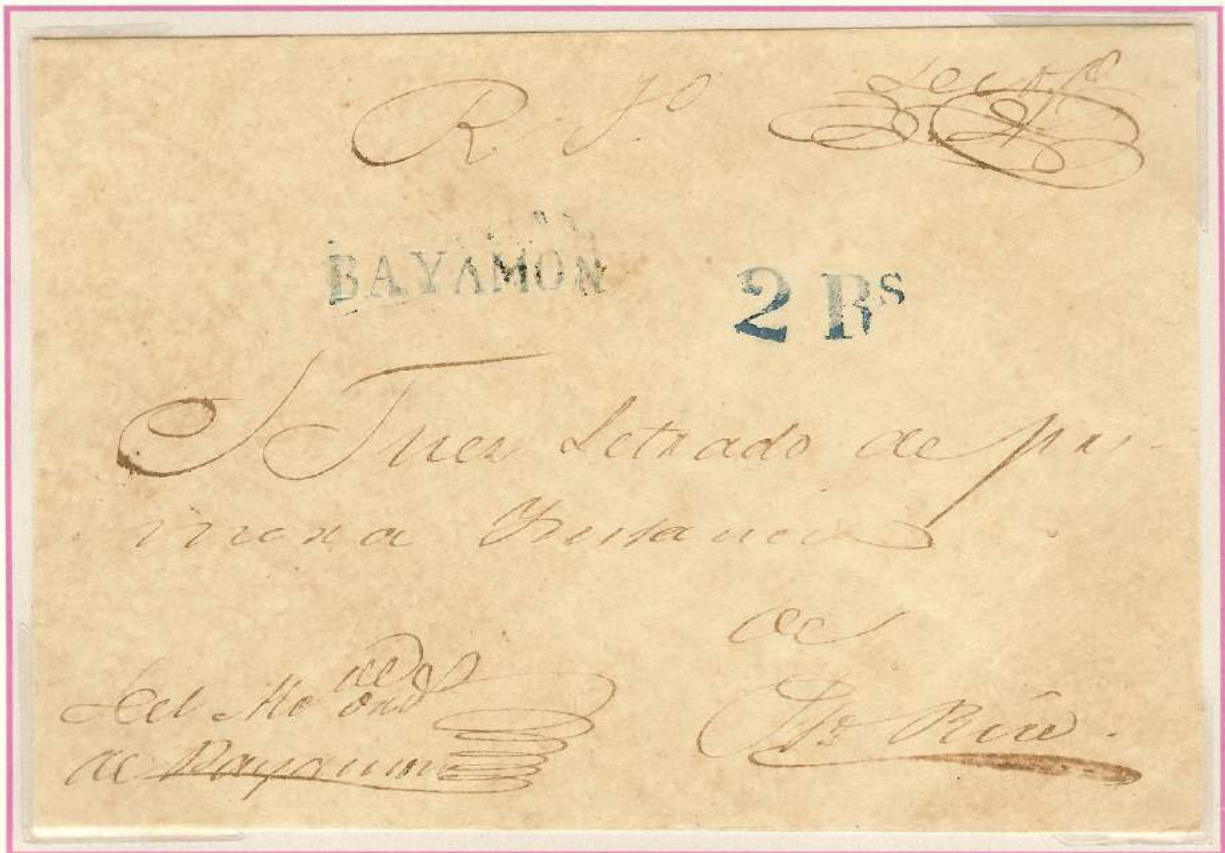 R. S.º
BAYAMON
2 Rˢ
S Juez Letrado de pri-
mera Instancia
de
Pto Rico.
Del
de Bayamon